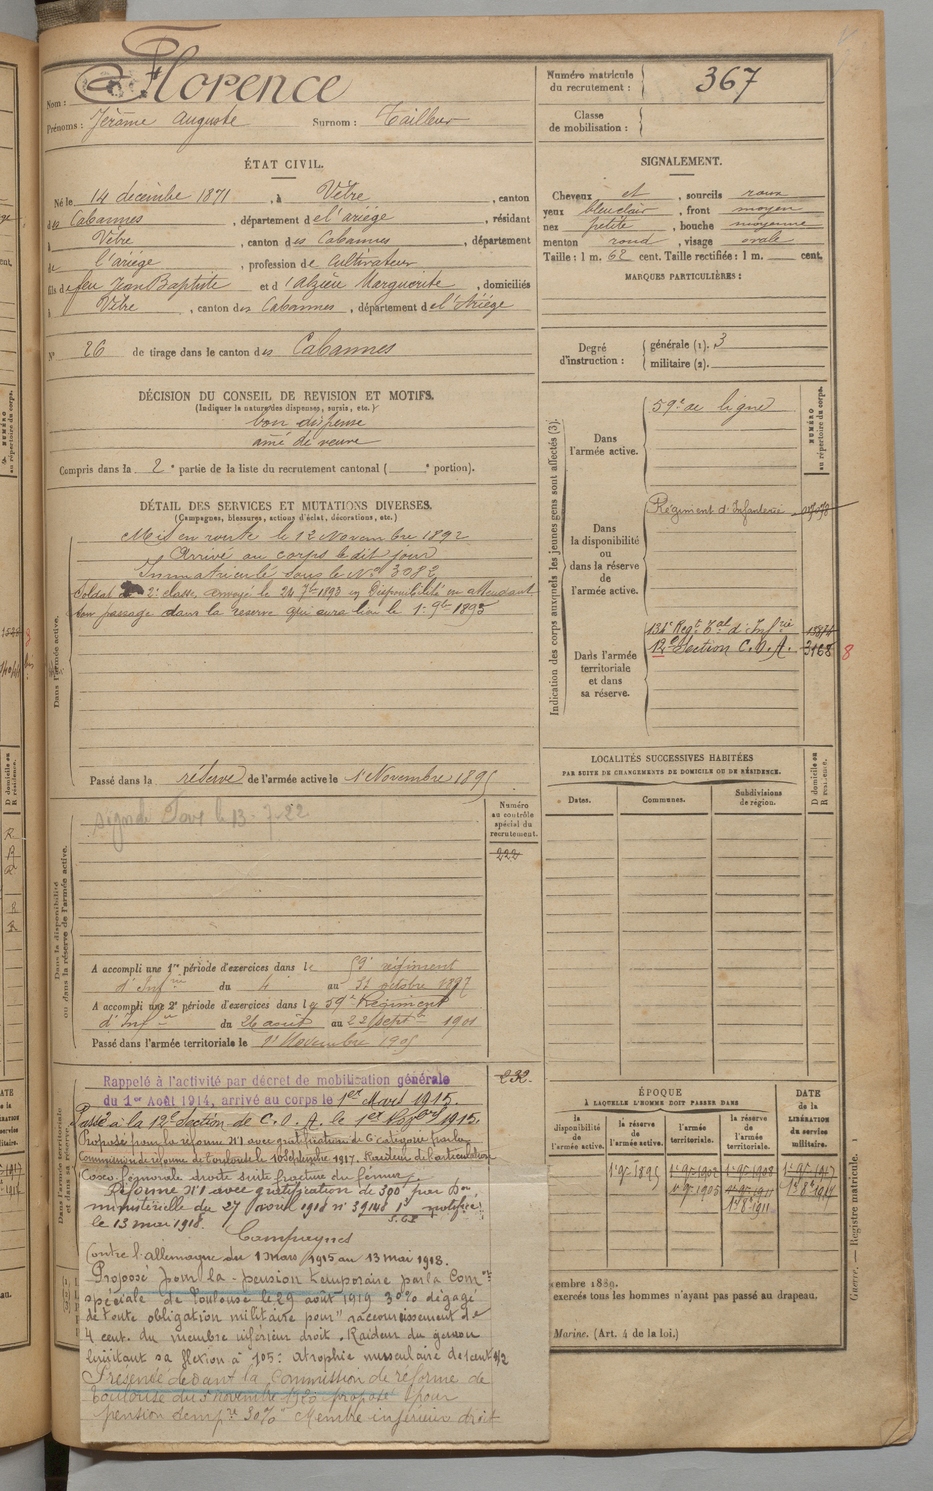 Nom : Florence
Prénoms : Jérôme Auguste Surnom : Tailleur
Numéro matricule
du recrutement : 367
Classe
de mobilisation :
ÉTAT CIVIL.
Né le 14 décembre 1871, à Vèbre, canton
des Cabannes, département de l'ariège, résidant
à Vèbre, canton des Cabannes, département
de l'ariège, profession de Cultivateur
fils de feu Jean Baptiste et d'Alzieu Marguerite, domiciliés
à Vèbre, canton des Cabannes, département de l'Ariège
N° 26 de tirage dans le canton des Cabannes
SIGNALEMENT.
Cheveux et, sourcils roux
yeux bleu clair, front moyen
nez petite, bouche moyenne
menton rond, visage ovale
Taille : 1 m. 62 cent. Taille rectifiée : 1 m. cent.
MARQUES PARTICULIÈRES :
Degré
d'instruction :
générale (1). 3
militaire (2).
DÉCISION DU CONSEIL DE REVISION ET MOTIFS.
(Indiquer la nature des dispenses, sursis, etc.)
bon dispensé
ainé de veuve
Compris dans la 2e partie de la liste du recrutement cantonal ( e portion).
DÉTAIL DES SERVICES ET MUTATIONS DIVERSES.
(Campagnes, blessures, actions d'éclat, décorations, etc.)
Dans l'armée active.
Mis en route le 12 Novembre 1892
Arrivé au corps le dit jour
Immatriculé sous le No 3082
Soldat de 2e classe, envoyé le 24 7bre 1893 en Disponibilité en attendant
son passage dans la réserve qui aura lieu le 1er 9bre 1895
Passé dans la réserve de l'armée active le 1 Novembre 1895
Indication des corps auxquels les jeunes gens sont affectés (3).
NUMÉRO
au répertoire du corps.
Dans
l'armée active.
59e de ligne
Dans
la disponibilité
ou
dans la réserve
de
l'armée active.
Régiment d'Infanterie
Dans l'armée
territoriale
et dans
sa réserve.
134e Regt Tal d'Infrie
12e Section C.O.A. 3168 8
LOCALITÉS SUCCESSIVES HABITÉES
PAR SUITE DE CHANGEMENTS DE DOMICILE OU DE RÉSIDENCE.
Dates.
Communes.
Subdivisions
de région.
D domicile ou
R résidence.
Dans la disponibilité
ou dans la réserve de l'armée active.
Numéro
au contrôle
spécial du
recrutement.
222
le 13-7-22
A accompli une 1re période d'exercices dans le 59e régiment
d'Infrie du 4 au 31 octobre 1897
A accompli une 2e période d'exercices dans le 59e Régiment
d'Infrie du 26 août au 22 Septbre 1901
Passé dans l'armée territoriale le 1er Novembre 1905
232
Dans l'armée territoriale
et dans sa réserve.
Rappelé à l'activité par décret de mobilisation générale
du 1er Août 1914, arrivé au corps le 1er Mars 1915.
Passé à la 12e Section de C.O.A. le 1er Novbre 1915.
Proposé pour la réforme N°1 avec gratification de 6e catégorie par la
Commission de réforme de Toulouse le 10 Septembre 1917. Raideur de l'articulation
Coxo fémorale droite suite fracture du fémur.
Réformé N°1 avec gratification de 300f par Don
ministérielle du 27 avril 1918 n° 39148 1er notifiée
le 13 mai 1918.
Campagnes
Contre l'allemagne du 1 mars 1915 au 13 mai 1918.
Proposé pour la pension temporaire par la Comon
spéciale de Toulouse le 29 août 1919 30% dégagé
de toute obligation militaire pour "raccourcissement de
4 cent. du membre inférieur droit. Raideur du genou
limitant sa flexion à 105: atrophie musculaire de 1 cent 1/2
Présenté devant la Commission de réforme de
Toulouse du 5 novembre 1920 proposé pour
pension tempre 30% "Membre inférieur droit
ÉPOQUE
À LAQUELLE L'HOMME DOIT PASSER DANS
la
disponibilité
de
l'armée active.
la réserve
de
l'armée active.
l'armée
territoriale.
la réserve
de
l'armée
territoriale.
DATE
de la
LIBÉRATION
du service
militaire.
1er 9bre 1895 1er 9bre 1902 1er 9bre 1908 1er 9bre 1917
1er 9bre 1905 1er 9bre 1911 1er 8bre 1917
1er 8bre 1911
embre 1889.
exercés tous les hommes n'ayant pas passé au drapeau.
Marine. (Art. 4 de la loi.)
Guerre. — Registre matricule. 1